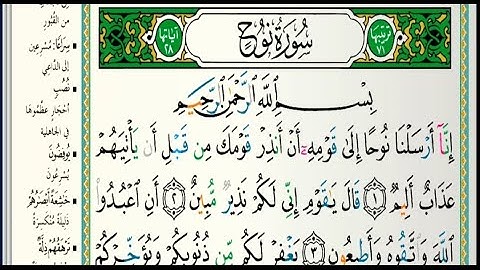 ترتيبها ٧١
سُورَةُ نُوحٍ
آياتها ٢٨
بِسْمِ اللَّهِ الرَّحْمَٰنِ الرَّحِيمِ
إِنَّا أَرْسَلْنَا نُوحًا إِلَىٰ قَوْمِهِ أَنْ أَنذِرْ قَوْمَكَ مِن قَبْلِ أَن يَأْتِيَهُمْ
عَذَابٌ أَلِيمٌ ﴿١﴾ قَالَ يَٰقَوْمِ إِنِّي لَكُمْ نَذِيرٌ مُّبِينٌ ﴿٢﴾ أَنِ اعْبُدُوا
اللَّهَ وَاتَّقُوهُ وَأَطِيعُونِ ﴿٣﴾ يَغْفِرْ لَكُم مِّن ذُنُوبِكُمْ وَيُؤَخِّرْكُمْ
القُبُور
سِرَاعًا: مُسْرِعِين
إلى الدَّاعِي
نُصُبٍ
أحْجَارٍ عَظَّمُوهَا
في الجاهلية
يُوفِضُونَ
يُسْرِعُونَ
خَٰشِعَةً أَبْصَٰرُهُمْ
ذَلِيلَةً مُنْكَسِرَةً
تَرْهَقُهُمْ ذِلَّةٌ